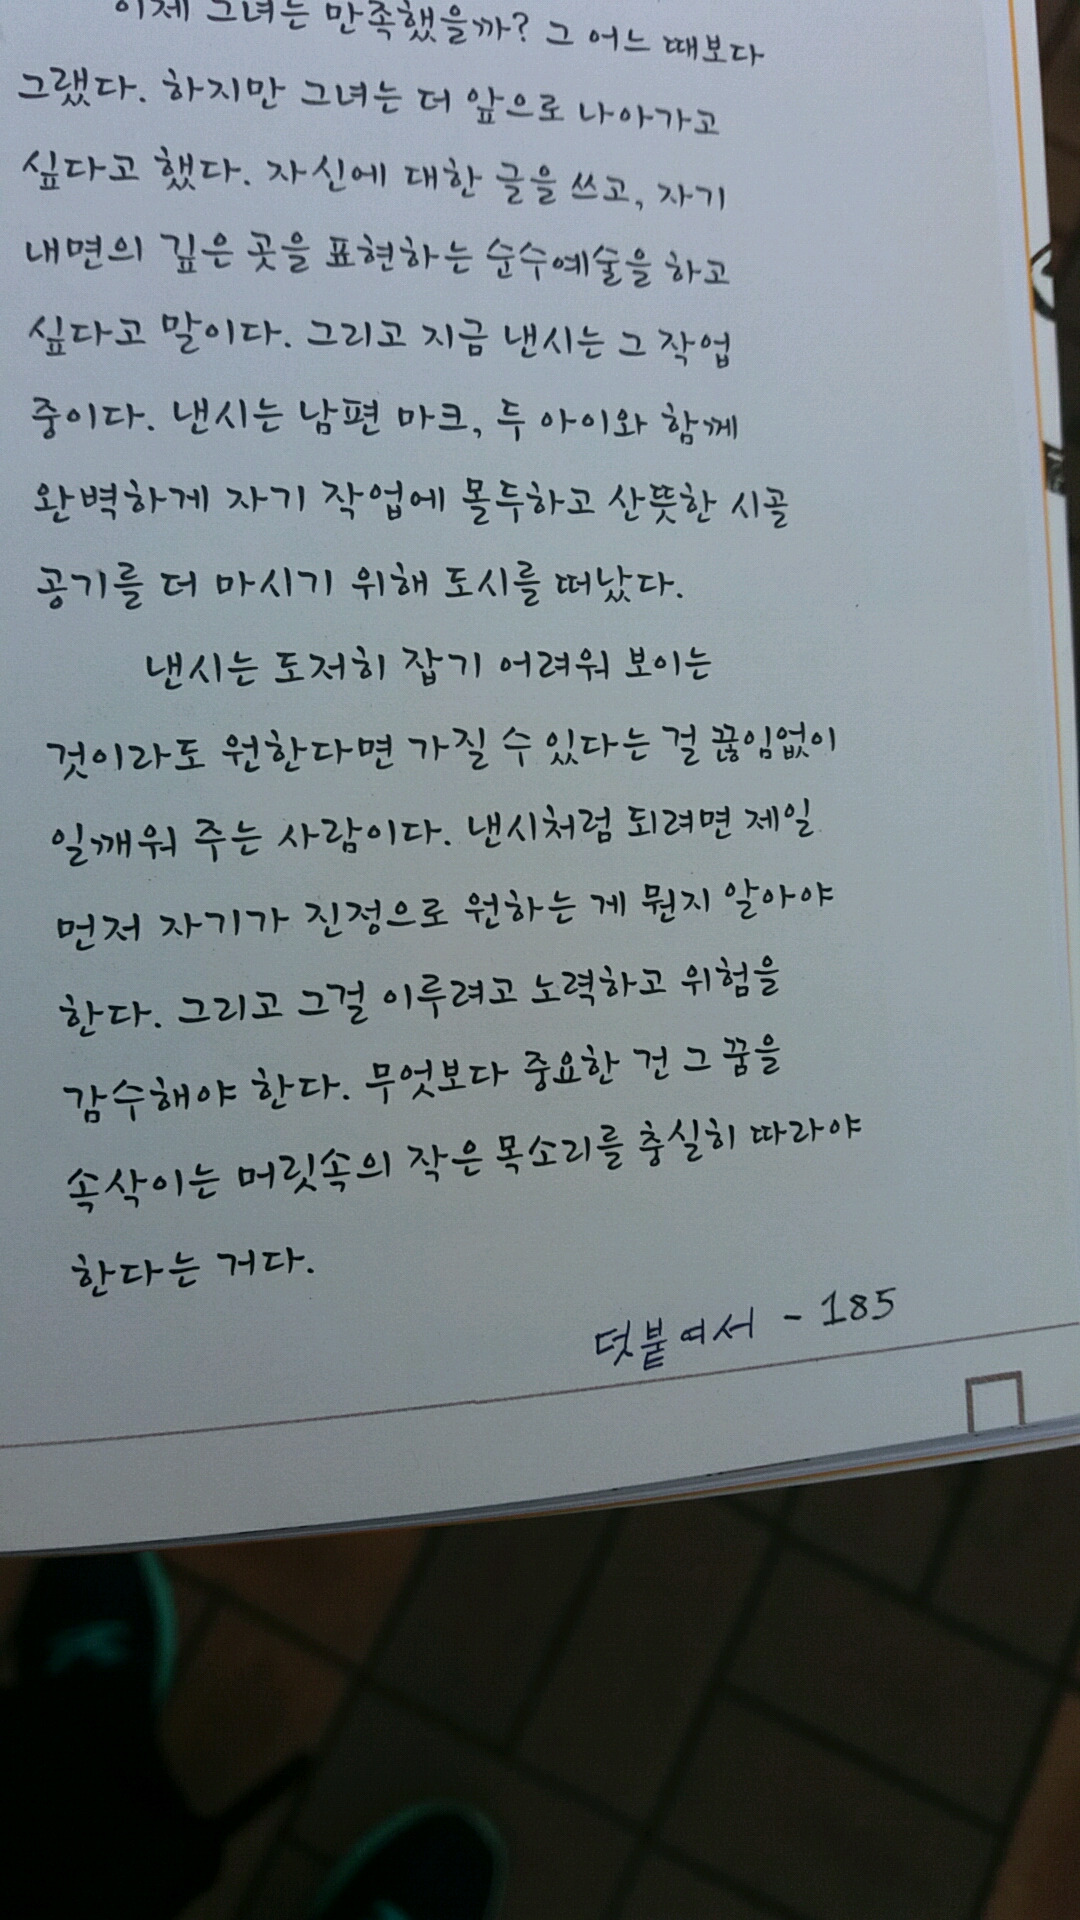 이제 그녀는 만족했을까? 그 어느 때보다
그랬다. 하지만 그녀는 더 앞으로 나아가고
싶다고 했다. 자신에 대한 글을 쓰고, 자기
내면의 깊은 곳을 표현하는 순수예술을 하고
싶다고 말이다. 그리고 지금 낸시는 그 작업
중이다. 낸시는 남편 마크, 두 아이와 함께
완벽하게 자기 작업에 몰두하고 산뜻한 시골
공기를 더 마시기 위해 도시를 떠났다.
낸시는 도저히 잡기 어려워 보이는
것이라도 원한다면 가질 수 있다는 걸 끊임없이
일깨워 주는 사람이다. 낸시처럼 되려면 제일
먼저 자기가 진정으로 원하는 게 뭔지 알아야
한다. 그리고 그걸 이루려고 노력하고 위험을
감수해야 한다. 무엇보다 중요한 건 그 꿈을
속삭이는 머릿속의 작은 목소리를 충실히 따라야
한다는 거다.
덧붙여서 - 185